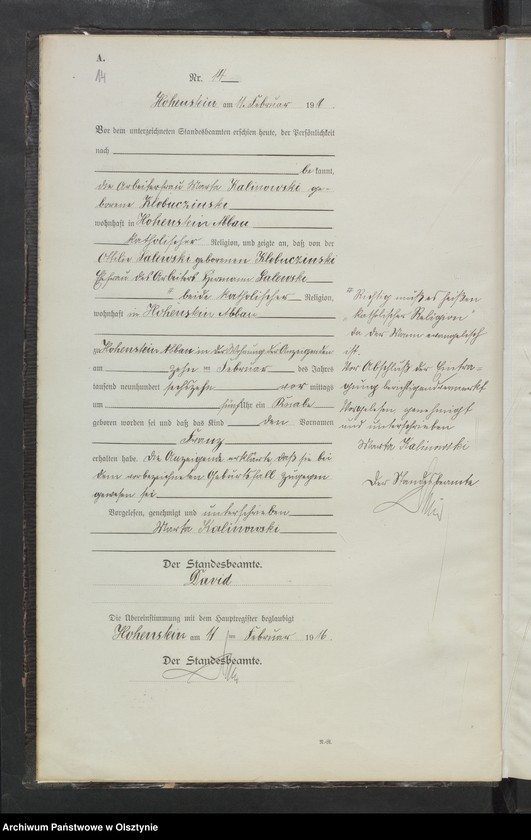 A.
14
Nr. 14
Hohenstein am 11. Februar 191
Vor dem unterzeichneten Standesbeamten erschien heute, der Persönlichkeit
nach
be kannt,
die Arbeiterfrau Marta Kalinowski ge-
borene Klobuczinski
wohnhaft in Hohenstein Abbau
katholischer Religion, und zeigte an, daß von der
Ottilie Salewski geborenen Klobuczinski
Ehefrau des Arbeiters Hermann Salewski
beide katholischer Religion,
wohnhaft in Hohenstein Abbau
zu Hohenstein Abbau in der Wohnung der Anzeigenden
am zehn Februar des Jahres
tausend neunhundert sechszehn vor mittags
um fünf Uhr ein Knabe
geboren worden sei und daß das Kind den Vornamen
Franz
erhalten habe. Die Anzeigende erklärte, daß sie bei
dem vorbezeichneten Geburtsfall zugegen
gewesen sei
Vorgelesen, genehmigt und unterschrieben
Marta Kalinowski
Der Standesbeamte.
David
Die Übereinstimmung mit dem Hauptregister beglaubigt
Hohenstein am 11 ten Februar 1916.
Der Standesbeamte.
Richtig muß es heißen
"katholischer Religion"
da der Mann evangelisch
ist.
Vor Abschluß der Eintra-
gung
Vorgelesen genehmigt
und unterschrieben
Marta Kalinowski
Der Standesbeamte
Archiwum Państwowe w Olsztynie